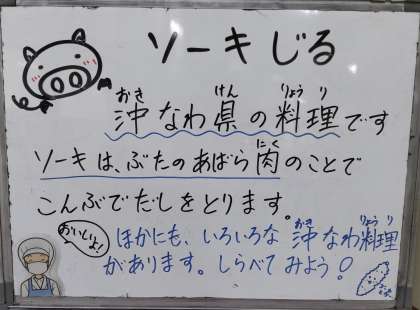 ソーキじる
沖なわ県の料理です
ソーキは、ぶたのあばら肉のことで
こんぶでだしをとります。
おいしいよ!
ほかにも、いろいろな沖なわ料理
があります。しらべてみよう!